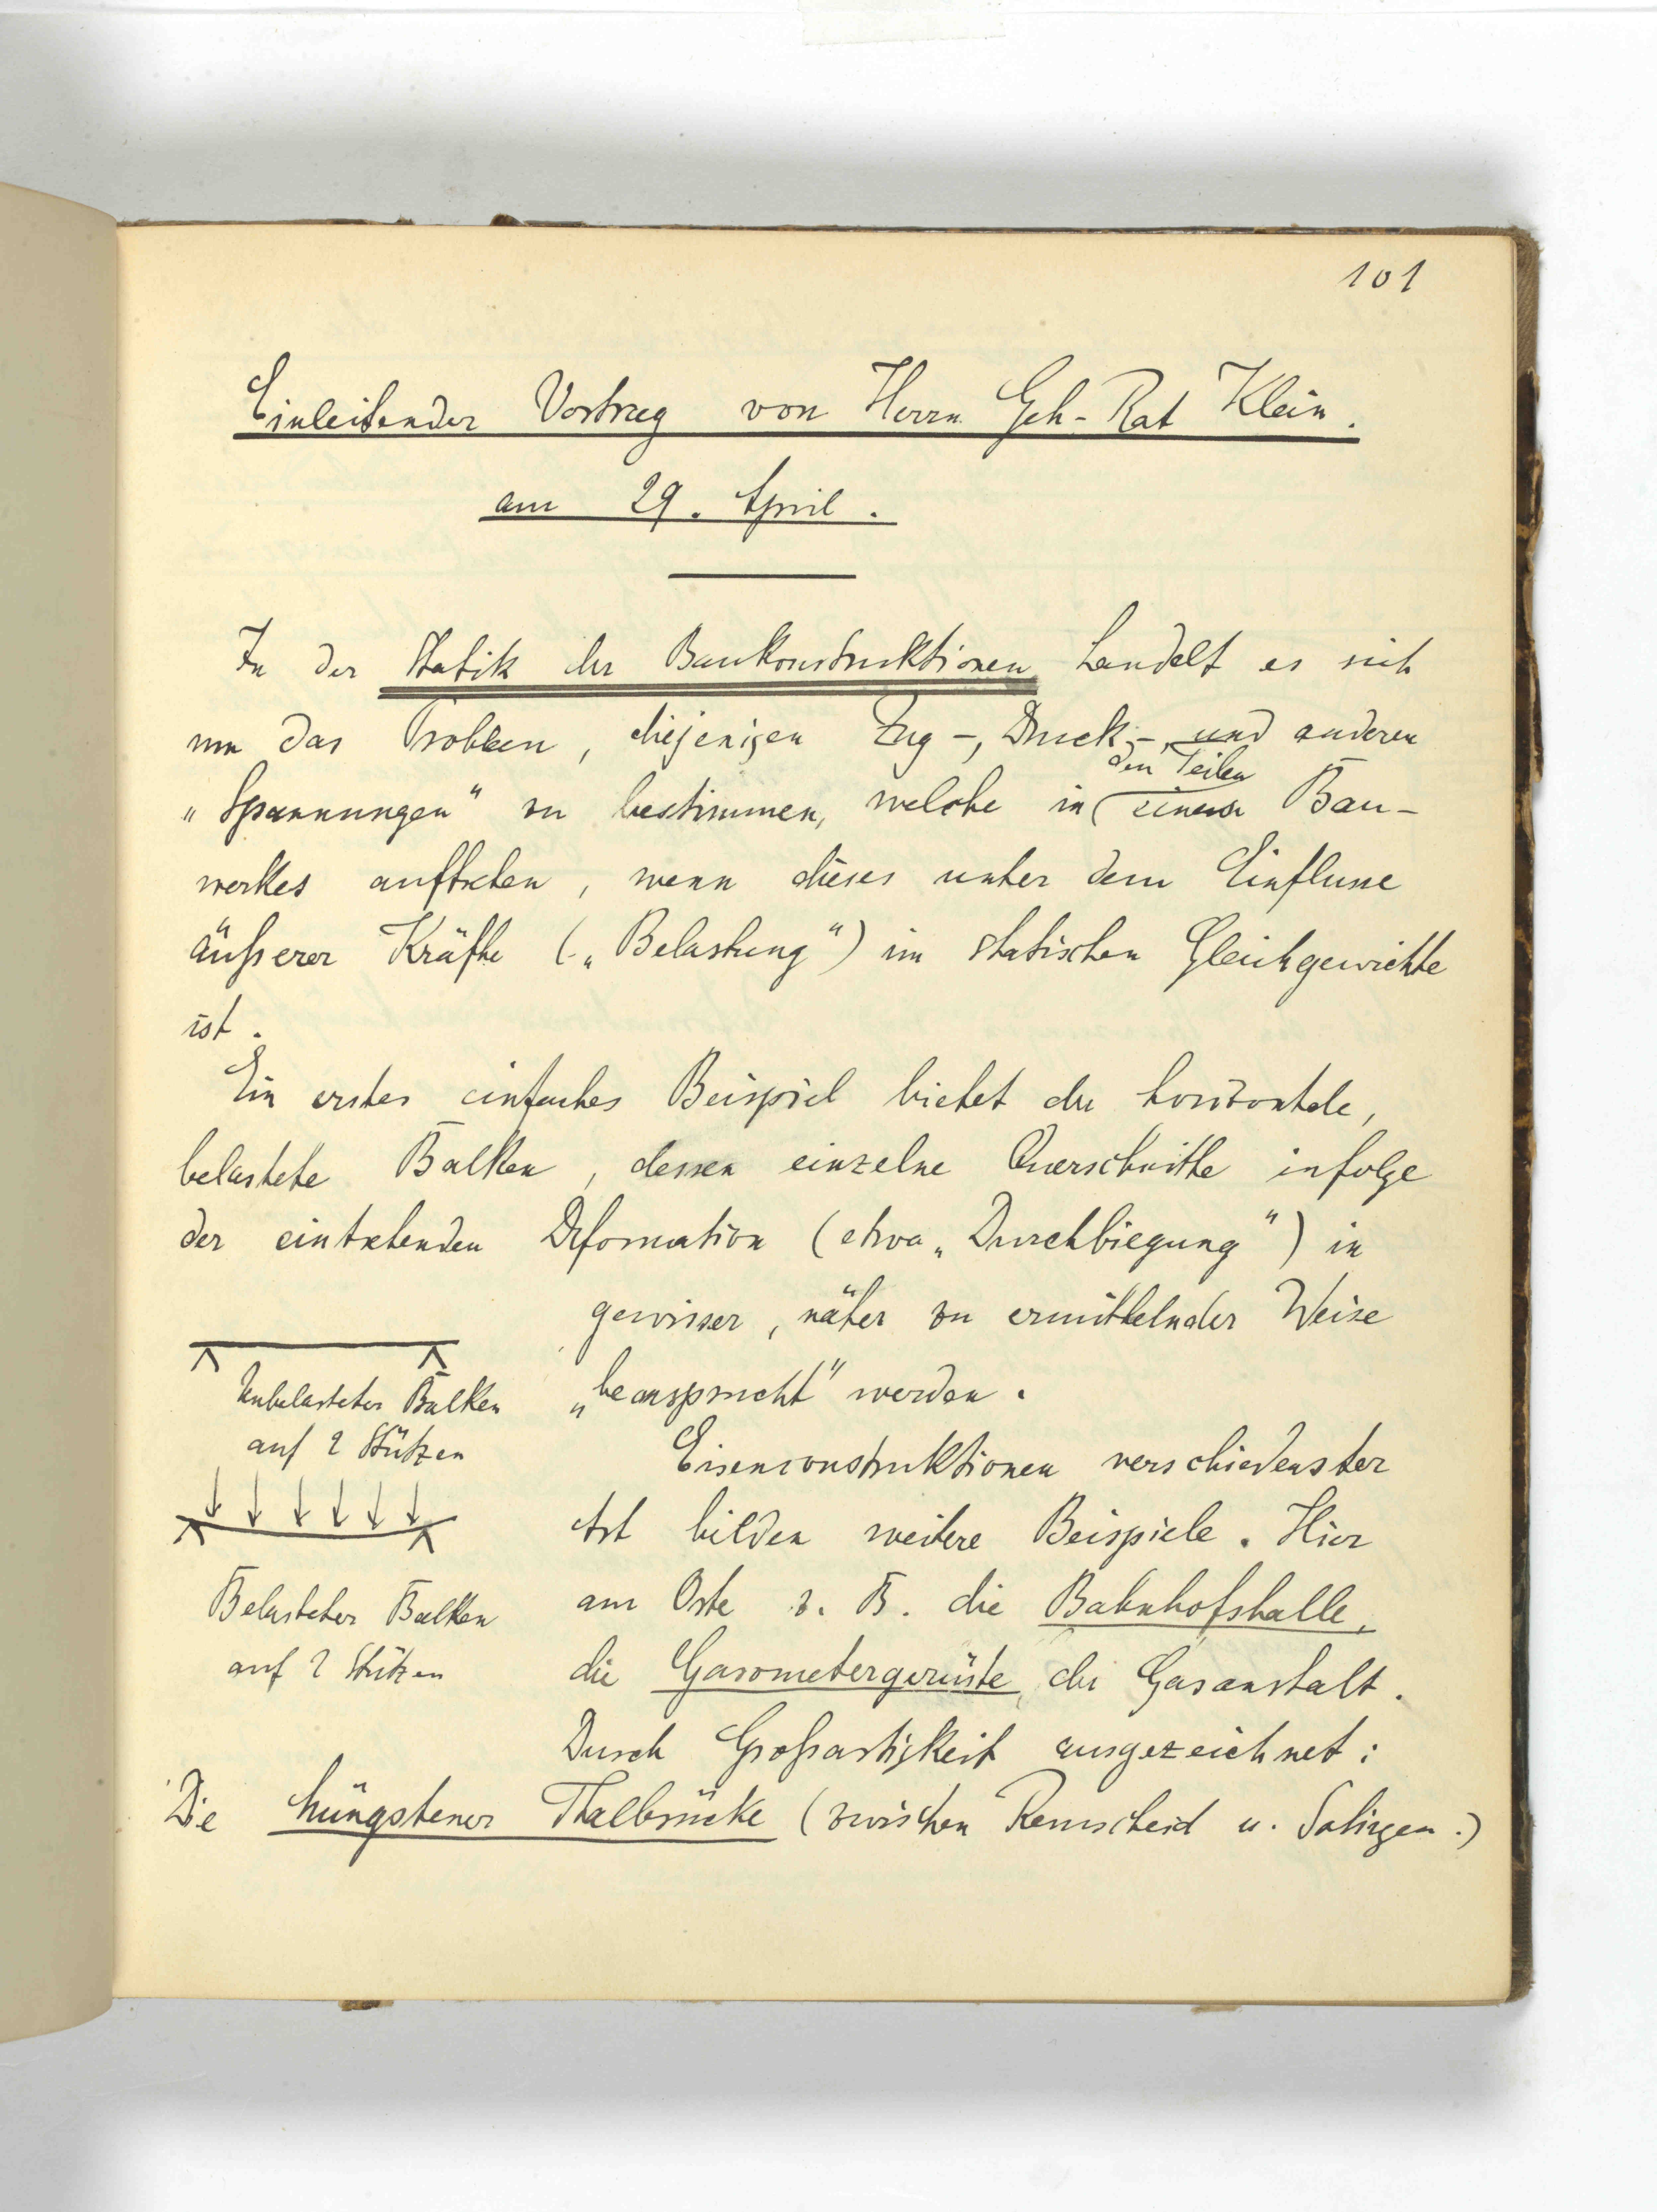 101
Einleitender Vortrag von Herrn Geh-Rat Klein.
am 29. April.
In der Statik der Baukonstruktionen handelt es sich
um das Problem, diejenigen Zug-, Druck-, und anderen
den Teilen
"Spannungen" zu bestimmen, welche in eines Bau-
werkes auftreten, wenn dieses unter dem Einflusse
äußerer Kräfte ("Belastung") im statischen Gleichgewichte
ist.
Ein erstes einfaches Beispiel bietet der horizontale,
belastete Balken, dessen einzelne Querschnitte infolge
der eintretenden Deformation (etwa "Durchbiegung") in
gewisser, näher zu ermittelnder Weise
"beansprucht" werden.
Unbelasteter Balken
auf 2 Stützen
Eisenconstruktionen verschiedenster
Art bilden weitere Beispiele. Hier
am Orte z. B. die Bahnhofshalle,
die Gasometergerüste der Gasanstalt.
Belasteter Balken
auf 2 Stützen
Durch Großartigkeit ausgezeichnet:
Die Müngstener Thalbrücke (zwischen Remscheid u. Solingen.)